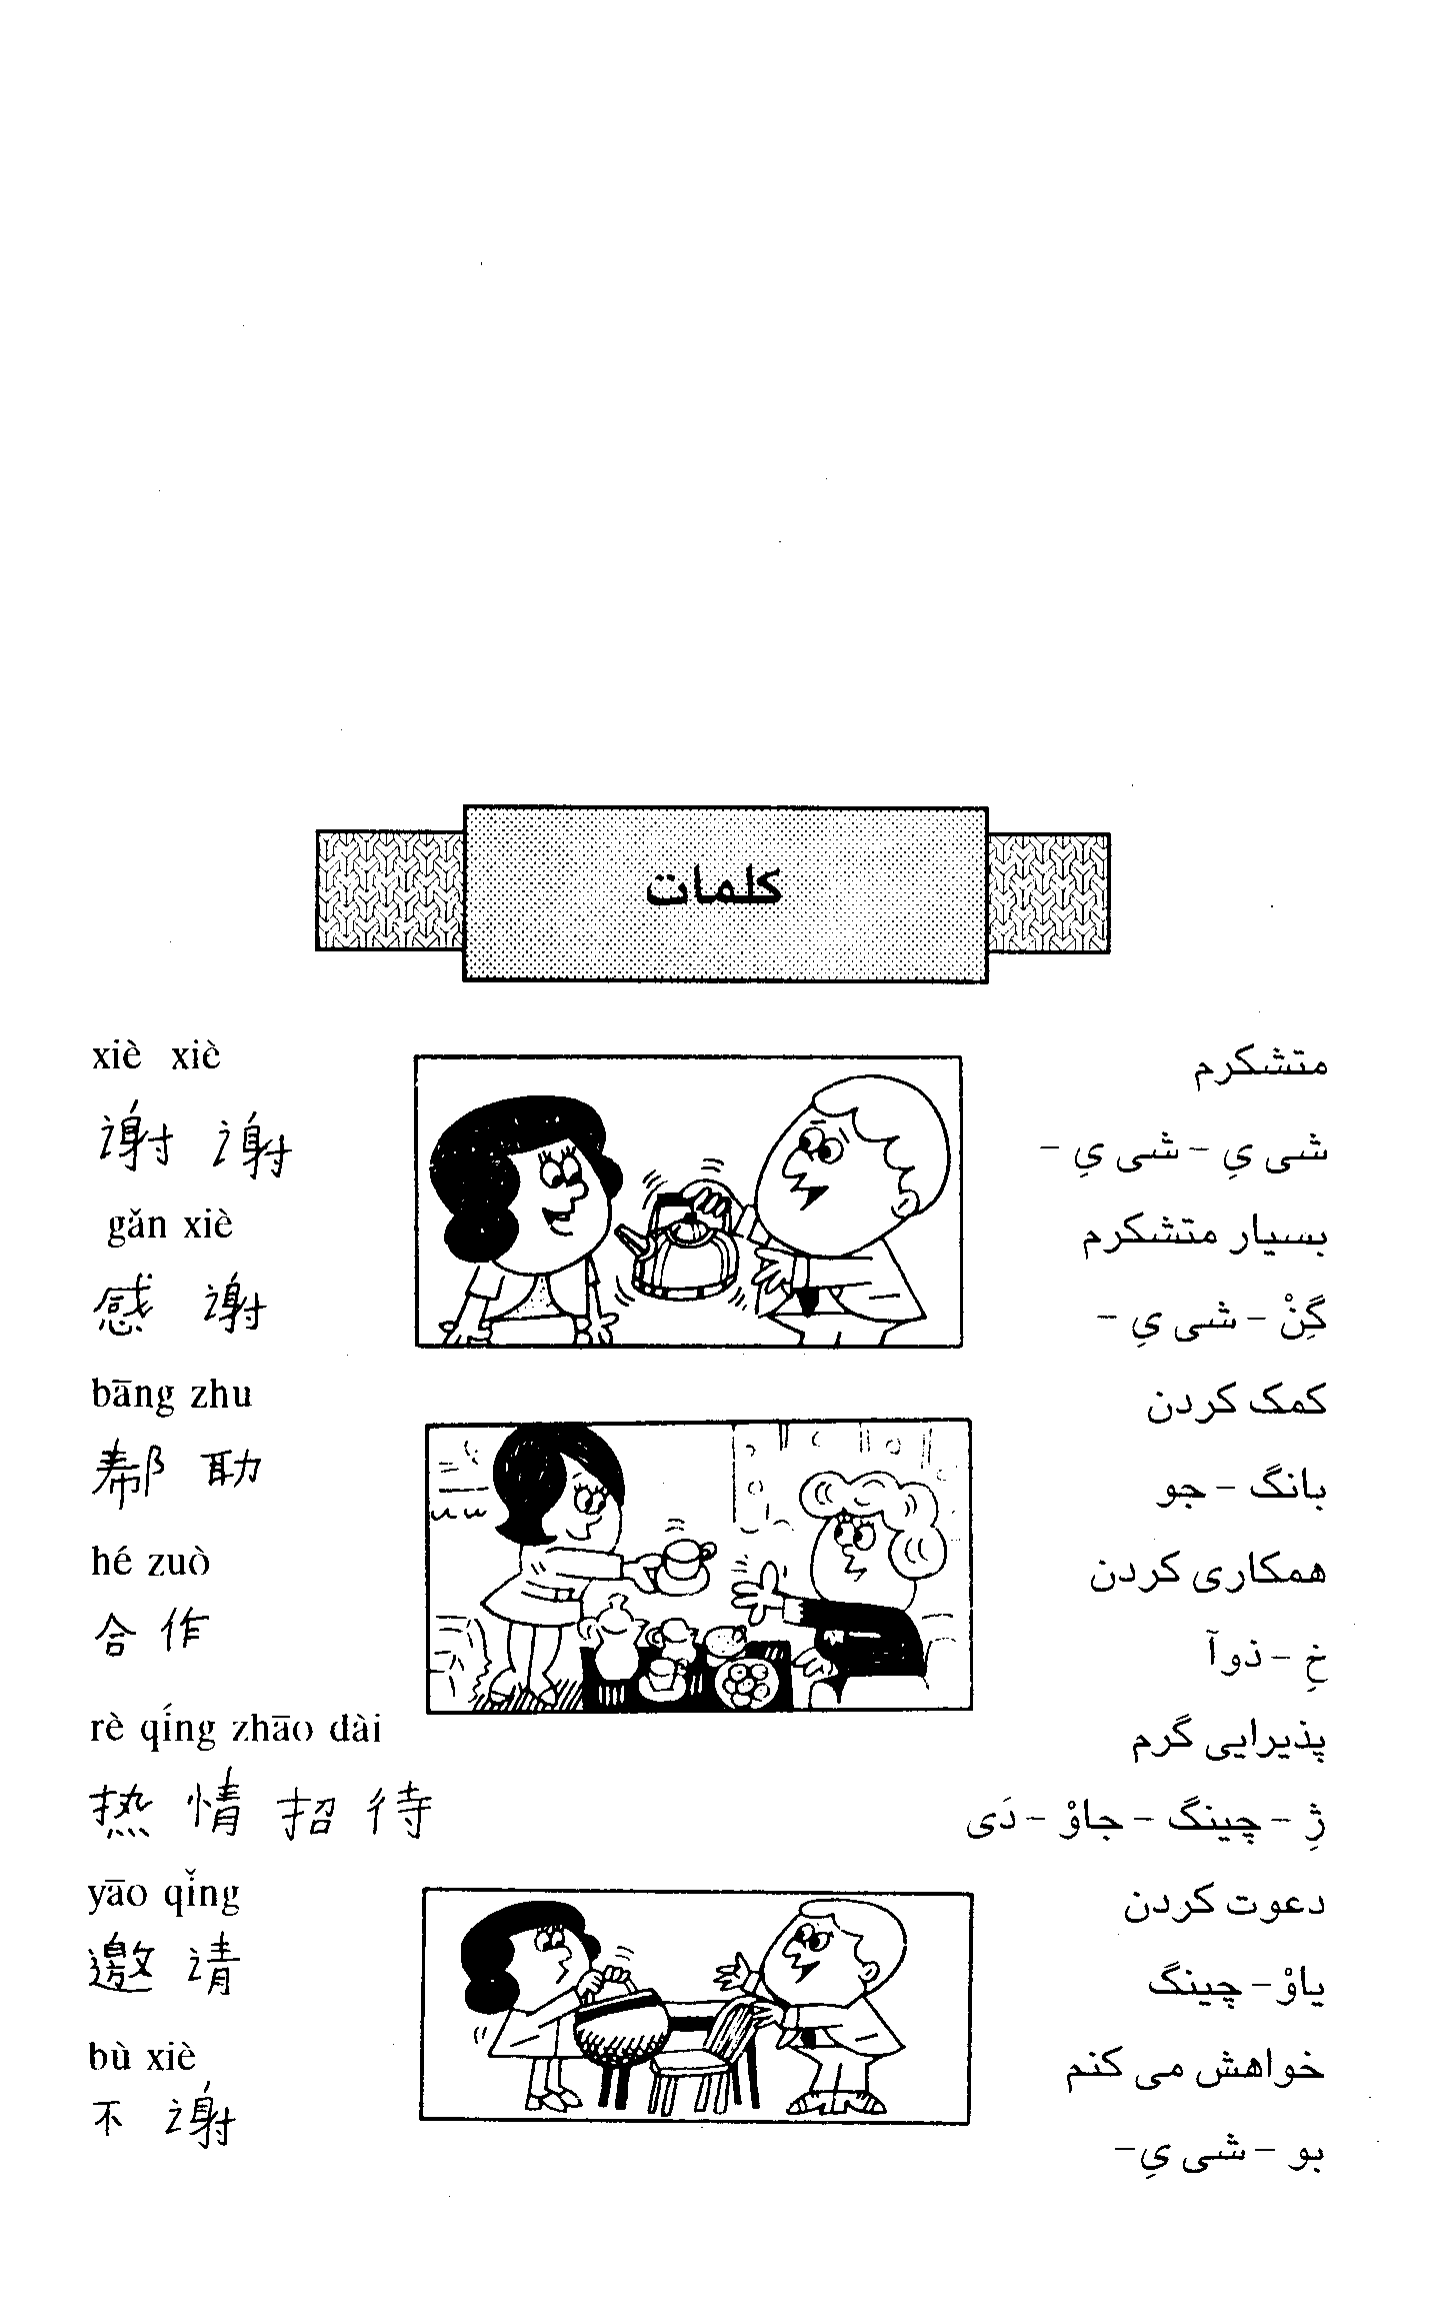 کلمات
xiè xiè
متشکرم
谢 谢
شی یِ - شی یِ -
gǎn xiè
بسیار متشکرم
感 谢
گِنْ - شی یِ -
bāng zhu
کمک کردن
帮 助
بانگ - جو
hé zuò
همکاری کردن
合 作
خِ - ذوآ
rè qíng zhāo dài
پذیرایی گرم
热 情 招 待
ژِ - چینگ - جاوْ - دَی
yāo qǐng
دعوت کردن
邀 请
یاوْ - چینگ
bù xiè
خواهش می کنم
不 谢
بو - شی یِ-